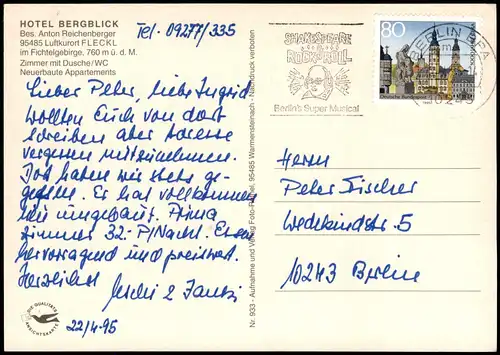 HOTEL BERGBLICK
Bes. Anton Reichenberger
95485 Luftkurort FLECKL
im Fichtelgebirge, 760 m ü. d. M.
Zimmer mit Dusche/WC
Neuerbaute Appartements
Tel. 09277/335
Lieber Peter, liebe Ingrid
wollten Euch von dort
schreiben aber Adresse
vergessen mitzunehmen.
Dort haben wir stets ge-
gefallen. Er hat vollkommen
neu umgebaut. Prima
Zimmer 32.- P/Nacht. Essen
hervorragend und preiswert.
Herzlichst
22/4-95
DIE QUALITÄTS
ANSICHTSKARTE
Nr. 933 - Aufnahme und Verlag Foto- 95485 Warmensteinach - Nachdruck verboten
SHAKESPEARE
ROCK'N'ROLL
Berlin's Super Musical
80
Deutsche Bundespost
BERLIN
Herrn
Peter Fischer
Wedekindstr. 5
10243 Berlin